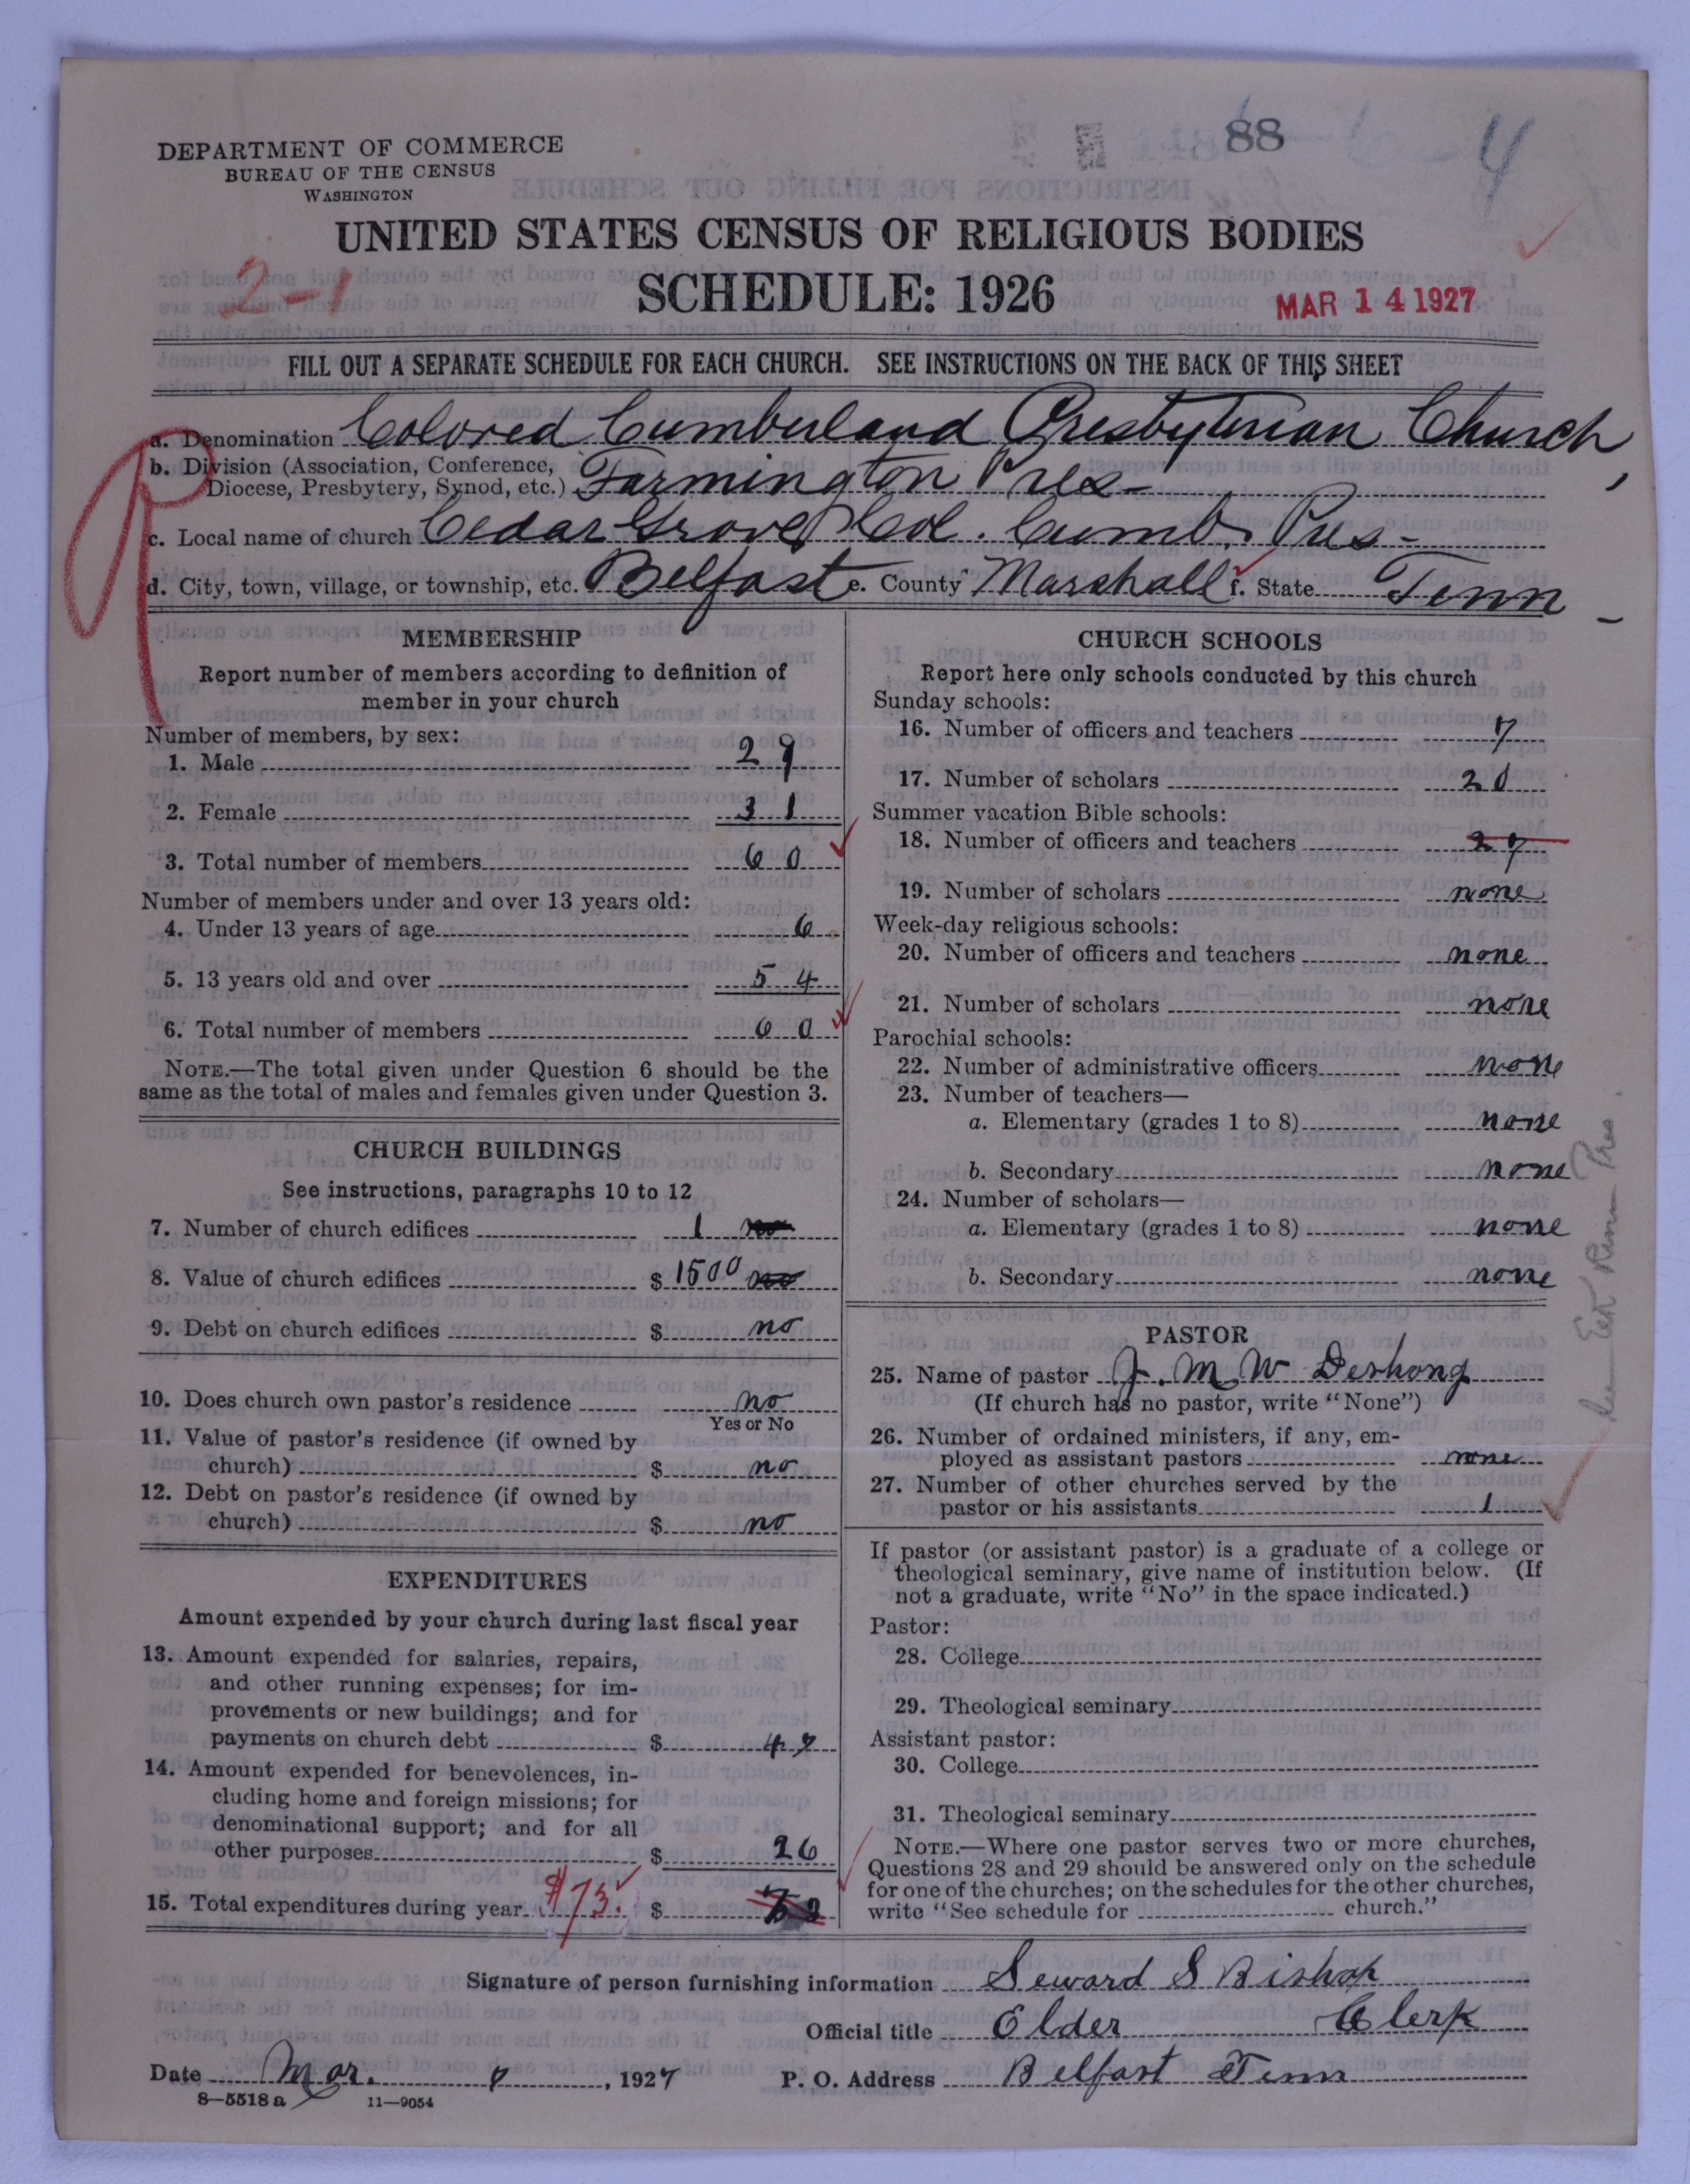 88
4
DEPARTMENT OF COMMERCE
BUREAU OF THE CENSUS
WASHINGTON
UNITED STATES CENSUS OF RELIGIOUS BODIES
2-1
SCHEDULE: 1926
MAR 14 1927
FILL OUT A SEPARATE SCHEDULE FOR EACH CHURCH. SEE INSTRUCTIONS ON THE BACK OF THIS SHEET
a. Denomination Colored Cumberland Presbyterian Church,
b. Division (Association, Conference,
Diocese, Presbytery, Synod, etc.) Farmington Pres-
c. Local name of church Cedar Grove Col. Cumb. Pres-
d. City, town, village, or township, etc. Belfast e. County Marshall f. State Tenn-
MEMBERSHIP
Report number of members according to definition of
member in your church
Number of members, by sex:
1. Male 29
2. Female 31
3. Total number of members 60
Number of members under and over 13 years old:
4. Under 13 years of age 6
5. 13 years old and over 54
6. Total number of members 60
NOTE.—The total given under Question 6 should be the
same as the total of males and females given under Question 3.
CHURCH BUILDINGS
See instructions, paragraphs 10 to 12
7. Number of church edifices 1
8. Value of church edifices $ 1500
9. Debt on church edifices $ no
10. Does church own pastor's residence no
Yes or No
11. Value of pastor's residence (if owned by
church) $ no
12. Debt on pastor's residence (if owned by
church) $ no
EXPENDITURES
Amount expended by your church during last fiscal year
13. Amount expended for salaries, repairs,
and other running expenses; for im-
provements or new buildings; and for
payments on church debt $ 47
14. Amount expended for benevolences, in-
cluding home and foreign missions; for
denominational support; and for all
other purposes $ 26
15. Total expenditures during year $73. $
CHURCH SCHOOLS
Report here only schools conducted by this church
Sunday schools:
16. Number of officers and teachers 7
17. Number of scholars 20
Summer vacation Bible schools:
18. Number of officers and teachers 27
19. Number of scholars none
Week-day religious schools:
20. Number of officers and teachers none
21. Number of scholars none
Parochial schools:
22. Number of administrative officers none
23. Number of teachers—
a. Elementary (grades 1 to 8) none
b. Secondary none
24. Number of scholars—
a. Elementary (grades 1 to 8) none
b. Secondary none
PASTOR
25. Name of pastor J. M. W Deshong
(If church has no pastor, write "None")
26. Number of ordained ministers, if any, em-
ployed as assistant pastors none
27. Number of other churches served by the
pastor or his assistants 1
If pastor (or assistant pastor) is a graduate of a college or
theological seminary, give name of institution below. (If
not a graduate, write "No" in the space indicated.)
Pastor:
28. College
29. Theological seminary
Assistant pastor:
30. College
31. Theological seminary
NOTE.—Where one pastor serves two or more churches,
Questions 28 and 29 should be answered only on the schedule
for one of the churches; on the schedules for the other churches,
write "See schedule for church."
Signature of person furnishing information Seward S Bishop
Official title Elder Clerk
Date Mar. 7, 1927 P. O. Address Belfast Tenn
8—5518 a 11—9054